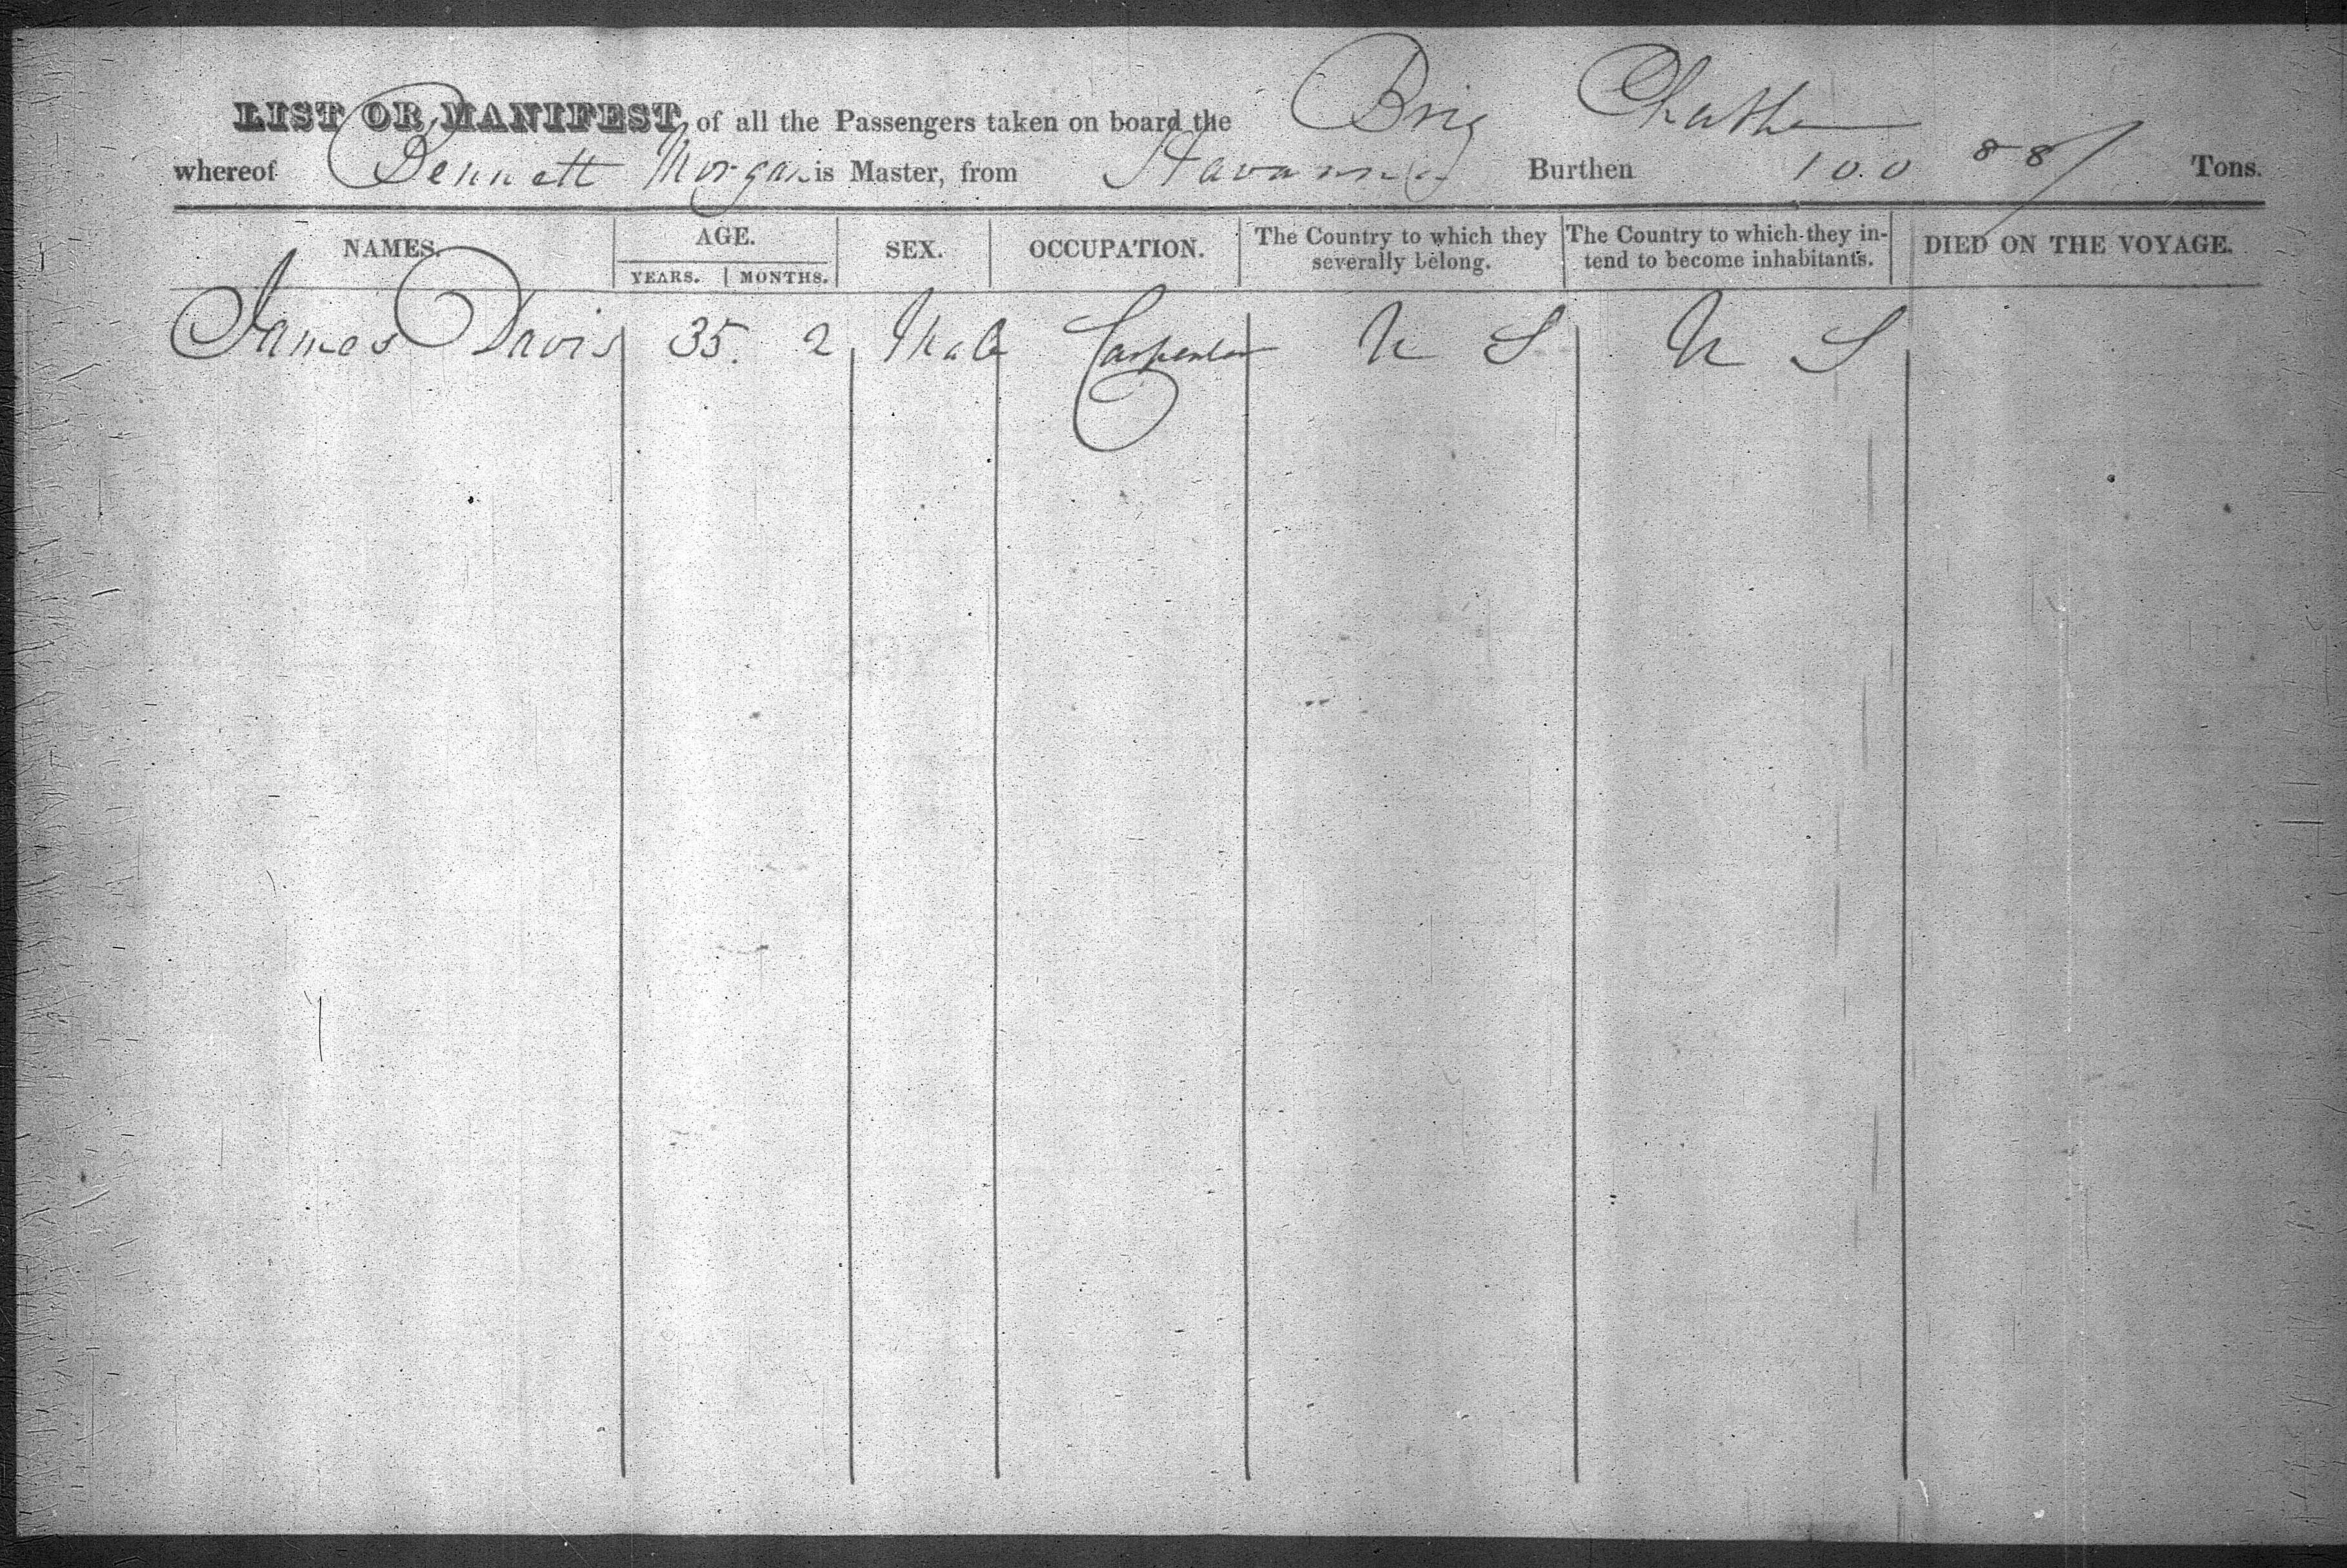 LIST OR MANIFEST of all the Passengers taken on board the Brig
whereof Bennett Morgan is Master, from Burthen 100 88/ Tons.
NAMES. AGE. SEX. OCCUPATION. The Country to which they severally belong. The Country to which they in-tend to become inhabitants. DIED ON THE VOYAGE.
YEARS. MONTHS.
James Davis 35. 2 Male Carpenter U S U S